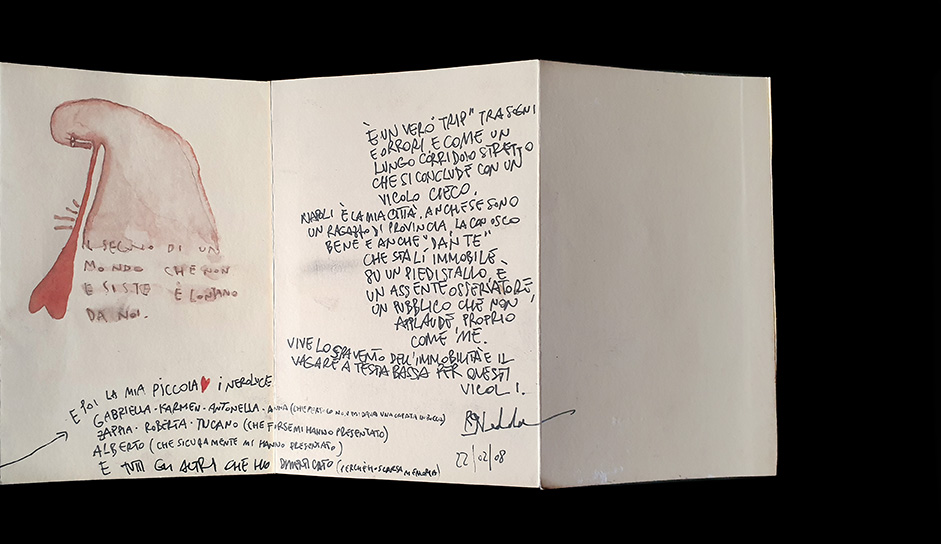 IL SEGNO DI UN
MONDO CHE NON
ESISTE È LONTANO
DA NOI.
È UN VERO "TRIP" TRA SOGNI
E ORRORI E COME UN
LUNGO CORRIDOIO STRETTO
CHE SI CONCLUDE CON UN
VICOLO CIECO.
NAPOLI È LA MIA CITTÀ, ANCHE SE SONO
UN RAGAZZO DI PROVINCIA, LA CONOSCO
BENE E ANCHE "DANTE"
CHE STA LÌ IMMOBILE
SU UN PIEDISTALLO, E
UN ASSENTE OSSERVATORE,
UN PUBBLICO CHE NON
APPLAUDE, PROPRIO
COME ME.
VIVE LO SPAVENTO DELL'IMMOBILITÀ E IL
VAGARE A TESTA BASSA PER QUESTI
VICOLI.
E POI LA MIA PICCOLA ♥ I NEROLUCE
GABRIELLA · KARMEN · ANTONELLA · ANNA
ZAPPIA · ROBERTA · TUCANO (CHE FORSE MI HANNO PRESENTATO)
ALBERTO (CHE SICURAMENTE MI HANNO PRESENTATO)
E TUTTI GLI ALTRI CHE HO DIMENTICATO (PERCHÈ HO SCARSA MEMORIA)
22/02/08